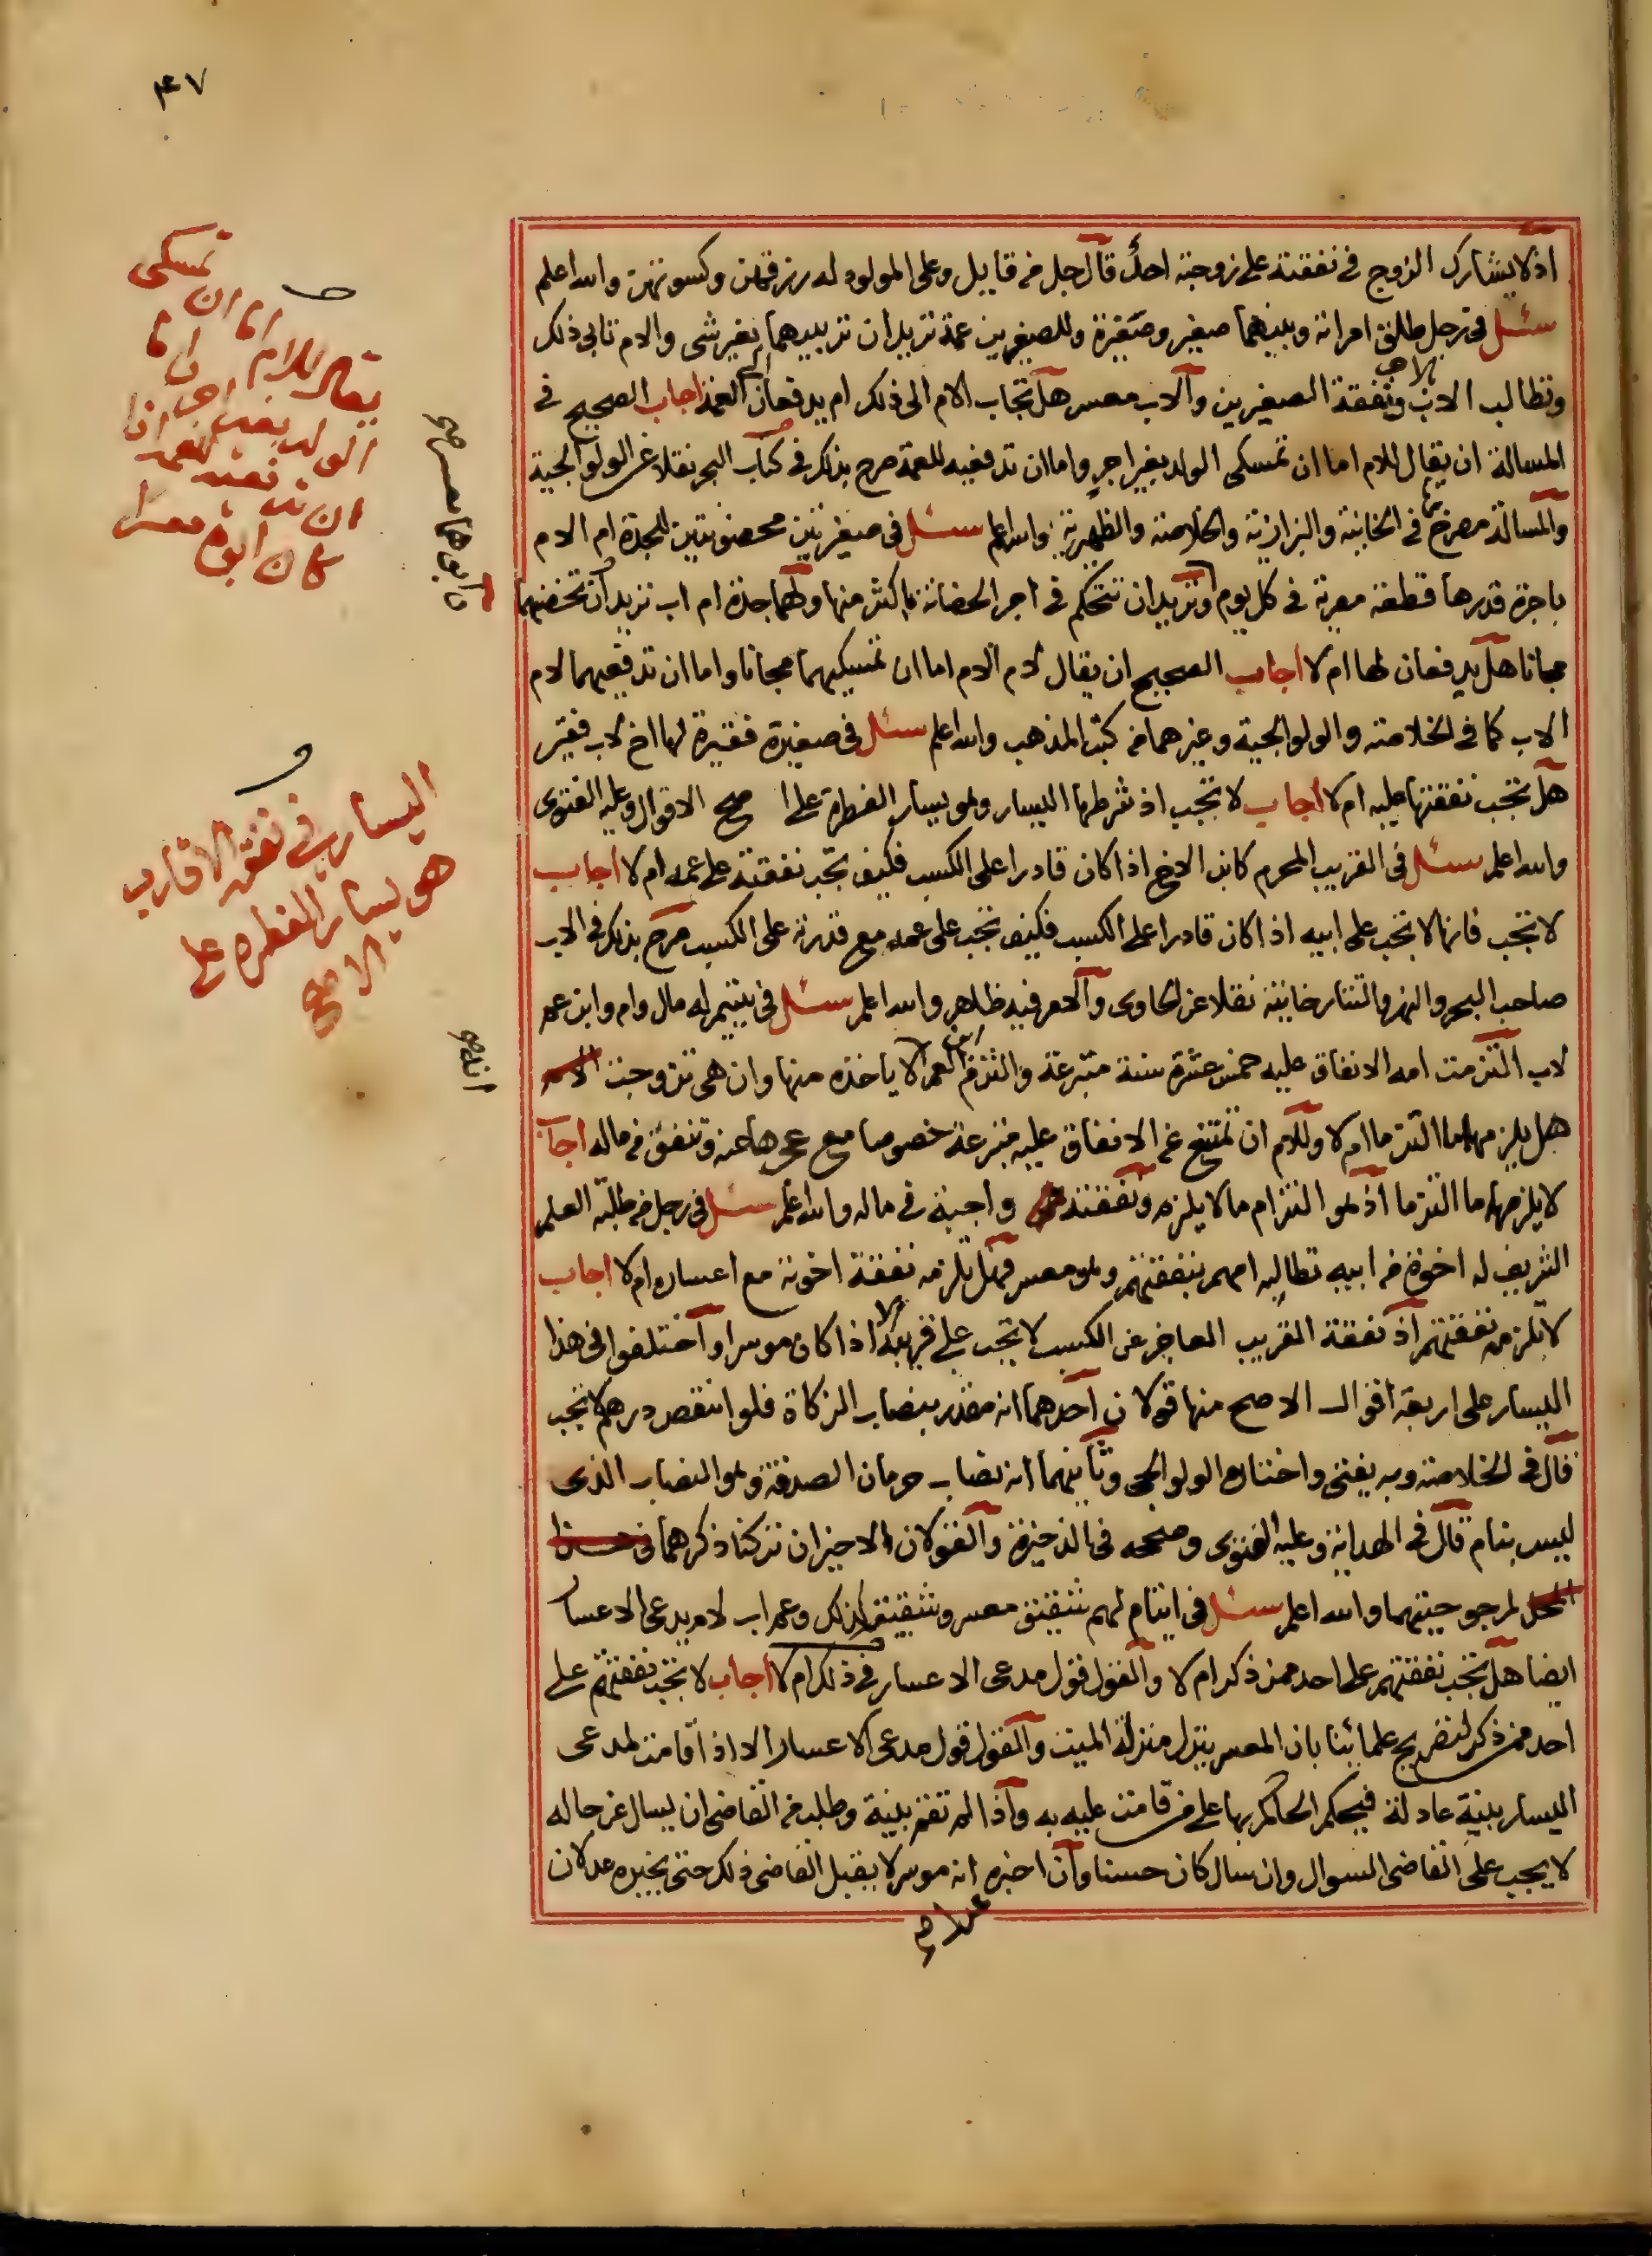 ٣٤٧
اذ لا يشارك الزوج في نفقته على زوجته احدٌ قال جل من قايل وعلى المولود له رزقهن وكسوتهن والله اعلم
سئل في رجل طلق امراته وبينهما صغير وصغيرة وللصغيرين عمة تريد ان تربيهما بغير شي والام تابى ذلك
وتطالب الاب بالاجر ونفقة الصغيرين والاب معسر هل تجاب الام الى ذلك ام يدفعان الى العمة اجاب الصحيح في
المسالة ان يقال للام اما ان تمسكي الولد بغير اجر واما ان تدفعيه للعمة صرح بذلك في كتاب البحر نقلا عن الولوالجية
والمسالة مصرح بها في الخانية والبزازية والخلاصة والظهيرية والله اعلم سئل في صغيرتين محضونتين للجدة ام الام
باجرة قدرها قطعة مصرية في كل يوم وتريد ان تتحكم في اجر الحضانة باكثر منها ولهما جدة ام اب تريد ان تحضنهما
مجانا هل يدفعان لها ام لا اجاب الصحيح ان يقال لام الام اما ان تمسكيهما مجانا واما ان تدفعيهما لام
الاب كما في الخلاصة والولوالجية وغيرهما من كتب المذهب والله اعلم سئل في صغيرة فقيرة لها اخ لاب فقير
هل تجب نفقتها عليه ام لا اجاب لا تجب اذ شرطها اليسار وهو يسار الفطرة على ا صح الاقوال وعليه الفتوى
والله اعلم سئل في القريب المحرم كابن الاخ اذا كان قادرا على الكسب فكيف تجب نفقته على عمه ام لا اجاب
لا تجب فانها لا تجب على ابيه اذا كان قادرا على الكسب فكيف تجب على عمه مع قدرته على الكسب صرح بذلك في الاب
صاحب البحر والنهر والتتارخانية نقلا عن الحاوى والامر فيه ظاهر والله اعلم سئل في يتيم له مال وام وابن عم
لاب التزمت امه الانفاق عليه خمس عشرة سنة متبرعة والتزم ابن العم الا ياخذه منها وان هي تزوجت الام
هل يلزمهما ما التزما ام لا وللام ان تمتنع عن الانفاق عليه متبرعة خصوصا مع عجزها عنه وتنفق من ماله اجاب
لا يلزمهما ما التزما اذ هو التزام ما لا يلزم ونفقته واجبة في ماله والله اعلم سئل في رجل من طلبة العلم
الشريف له اخوة من ابيه تطالبه امهم بنفقتهم وهو معسر فهل تلزمه نفقة اخوته مع اعساره ام لا اجاب
لا تلزمه نفقتهم اذ نفقة القريب العاجز عن الكسب لا تجب على قريبه الا اذا كان موسرا واختلفوا في هذا
اليسار على اربعة اقوال الاصح منها قولان احدهما انه مقدر بنصاب الزكاة فلو انتقص درهم لا تجب
قال في الخلاصة وبه يفتى واختاره الولوالجي وثانيهما انه نصاب حرمان الصدقة وهو النصاب الذى
ليس بنام قال في الهداية وعليه الفتوى وصححه في الذخيرة والقولان الاخيران تركنا ذكرهما في هذا
المحل لمرجوحيتهما والله اعلم سئل في ايتام لهم شقيق معسر وشقيقة كذلك وعم اب لام يدعى الاعسار
ايضا هل تجب نفقتهم على احد ممن ذكر ام لا والقول قول مدعى الاعسار في ذلك ام لا اجاب لا تجب نفقتهم على
احد ممن ذكر لتصريح علمائنا بان المعسر ينزل منزلة الميت والقول قول مدعى الاعسار الا اذا اقامت لمدعى
اليسار بينة عادلة فيحكم الحاكم بها على من قامت عليه به واذا لم تقم بينة وطلب من القاضى ان يسال عن حاله
لا يجب على القاضى السوال وان سال كان حسنا وان اخبره انه موسر لا يقبل القاضى ذلك حتى يخبره عدلان
يقال للام اما ان تمسكى
الولد بغير اجر واما
ان تدفعيه للعمة اذا
كان ابوه معسرا
وابوهما معسر صح
اليسار في نفقة الاقارب
هو يسار الفطرة على
الاصح